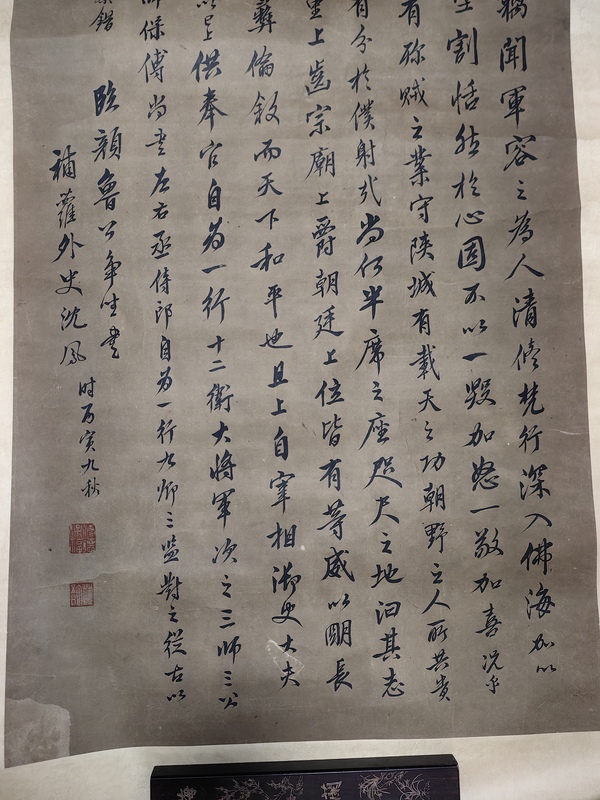 竊聞軍容之為人清修梵行深入佛海加以
割恬然於心固不以一毀加怒一敬加喜況乎
有殄賊之業守陝城有載天之功朝野之人所共貴
有分於僕射哉尚何半席之座咫尺之地汩其志
里上齒宗廟上爵朝廷上位皆有等威以明長
彝倫敘而天下和平也且上自宰相御史大夫
以上供奉官自為一行十二衛大將軍次之三師三公
師保傅尚書左右丞侍郎自為一行九卿三監對之從古以
臨顏魯公爭坐書
補蘿外史沈鳳
時丙寅九秋